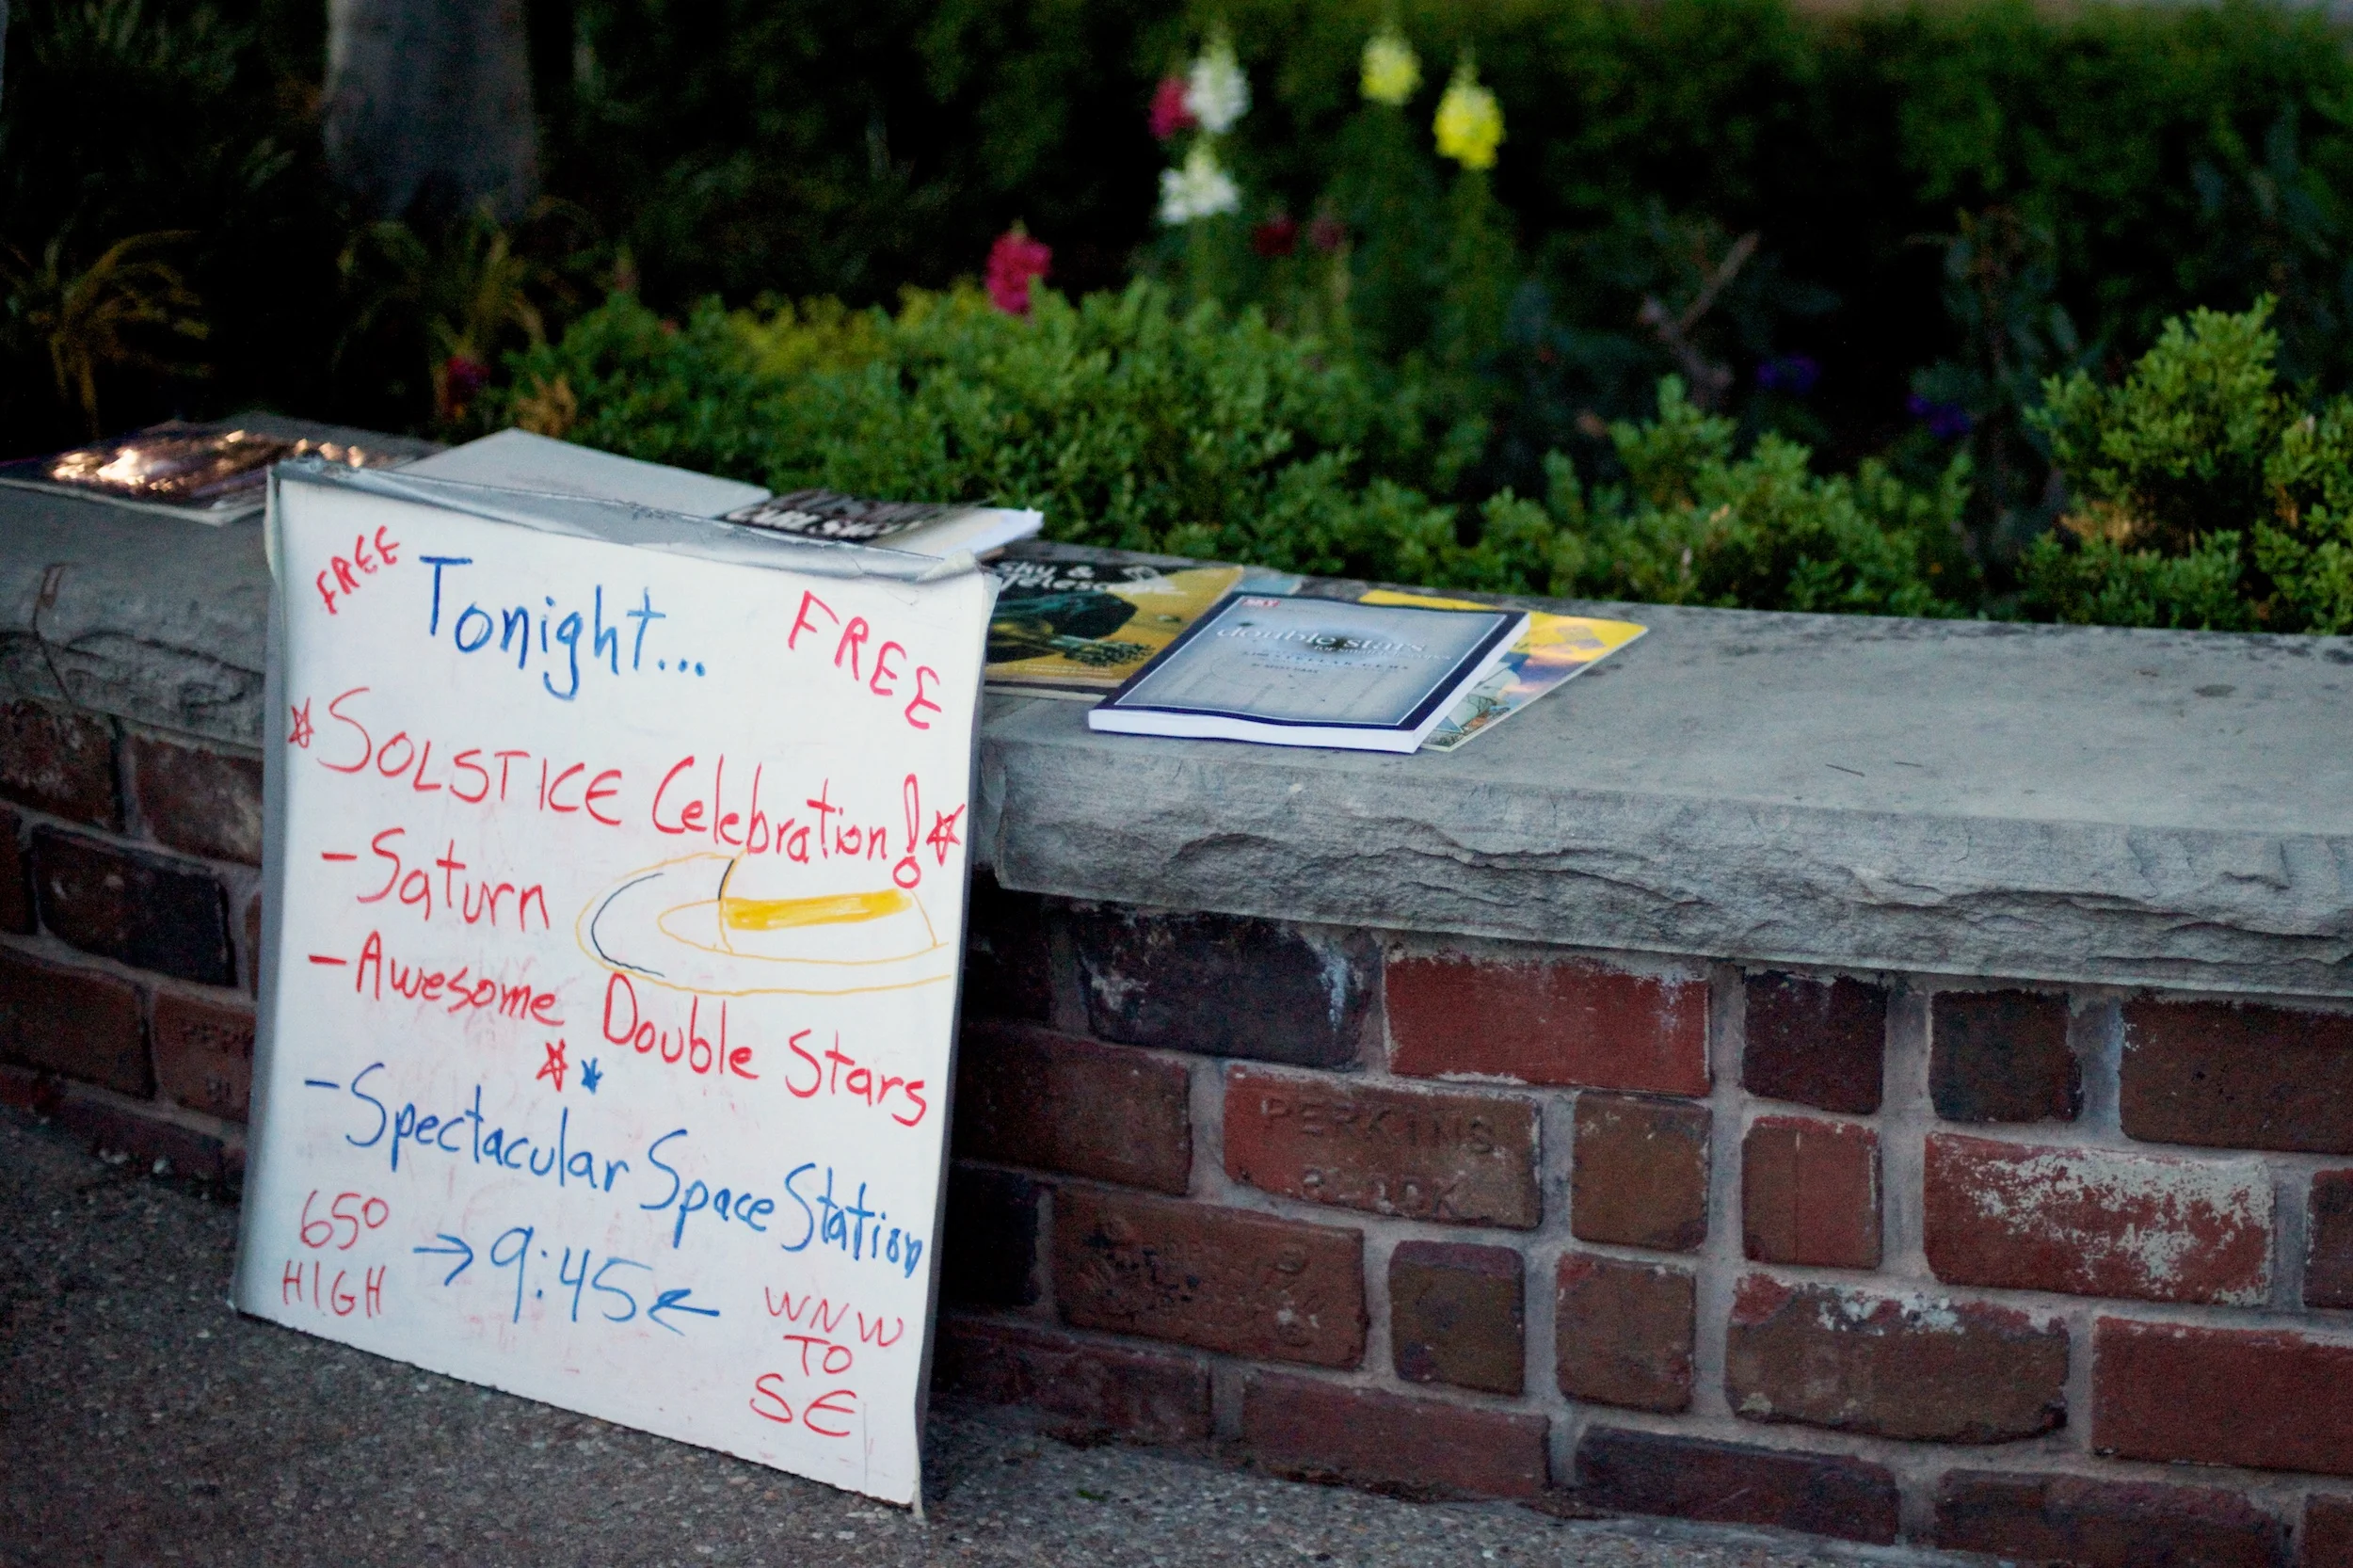 FREE
Tonight...
FREE
SOLSTICE Celebration!
-Saturn
-Awesome Double Stars
-Spectacular Space Station
65° HIGH
→9:45←
WNW
TO
SE
sky &
telescope
SKY
double stars
PERKINS
BLOCK